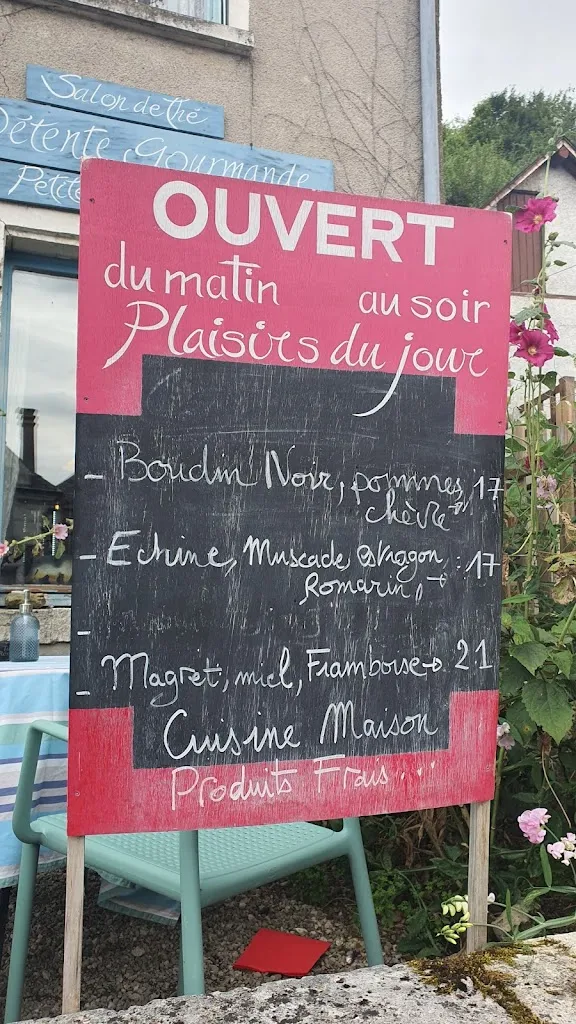 Salon de thé
Détente Gourmande
Petite
OUVERT
du matin au soir
Plaisirs du jour
- Boudin Noir, pommes, 17
chèvre →
- Echine, Muscade, estragon, : 17
Romarin, →
-
- Magret, miel, Framboise → 21
Cuisine Maison
Produits Frais...